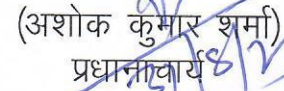 (अशोक कुमार शर्मा)
प्रधानाचार्य